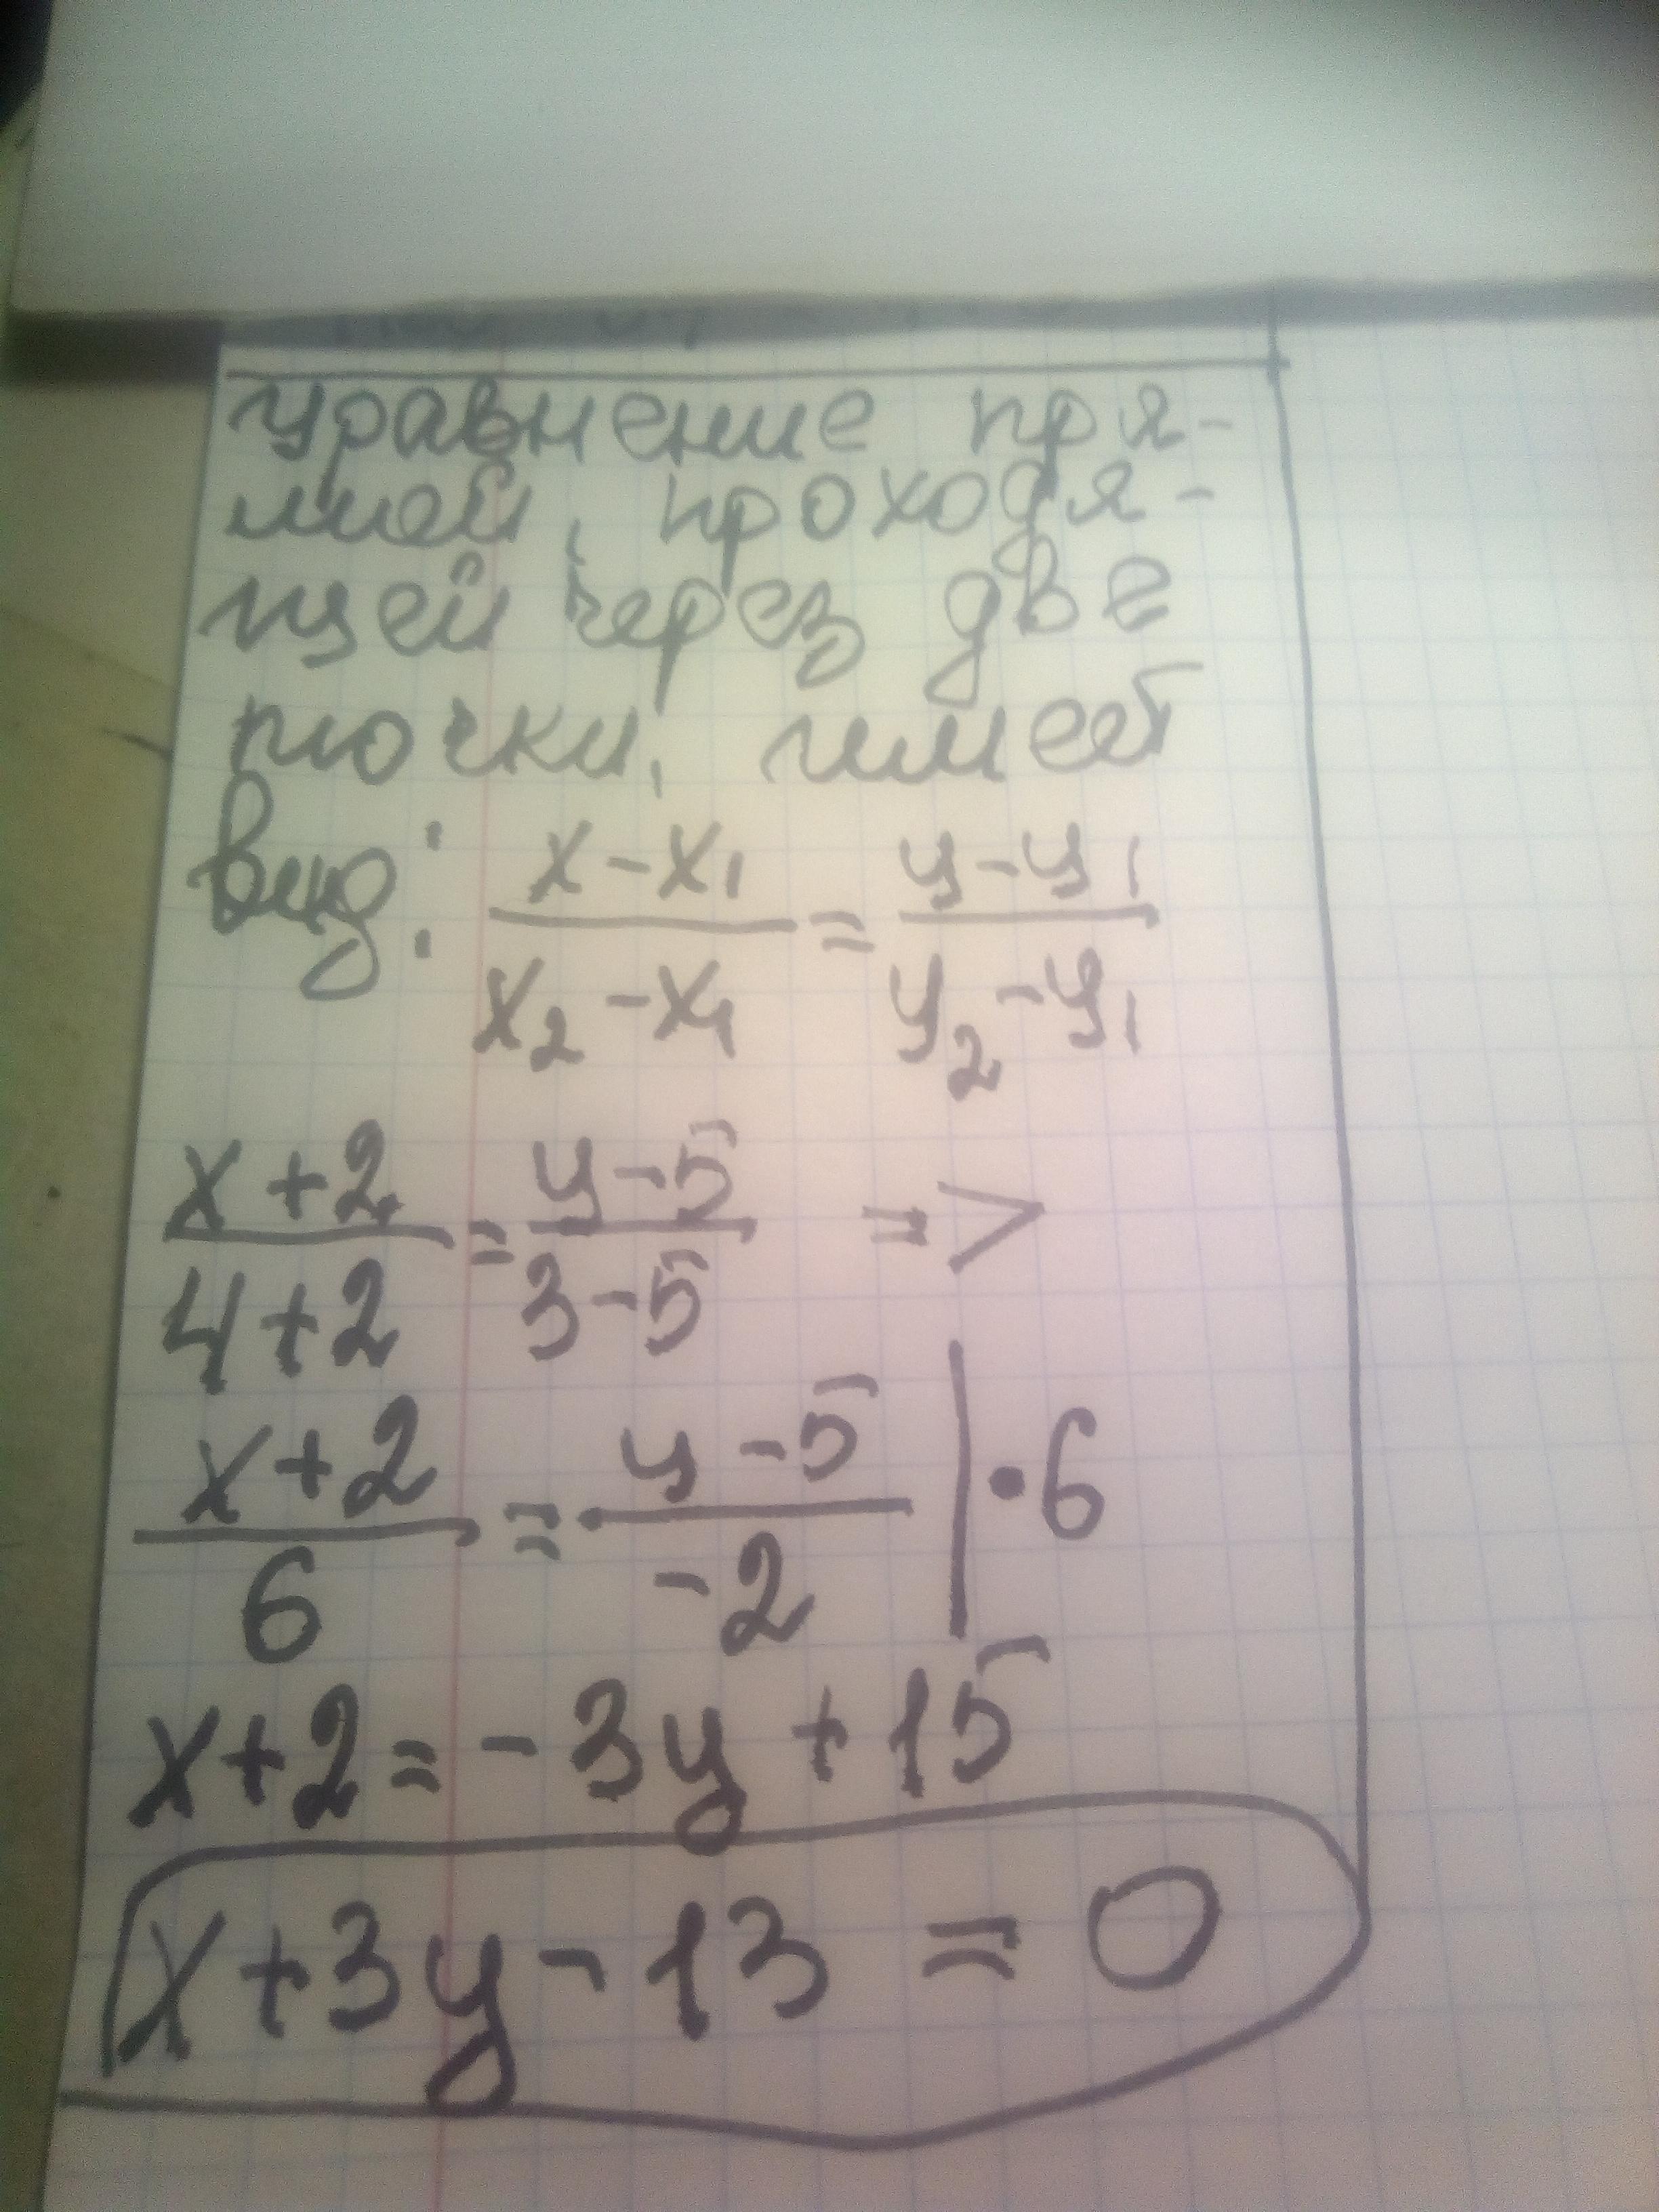 уравнение пря-
мой, проходя-
щей через две
точки, имеет
вид: x-x₁/x₂-x₁ = y-y₁/y₂-y₁
x+2/4+2 = y-5/3-5 =>
x+2/6 = y-5/-2 | •6
x+2=-3y+15
x+3y-13=0